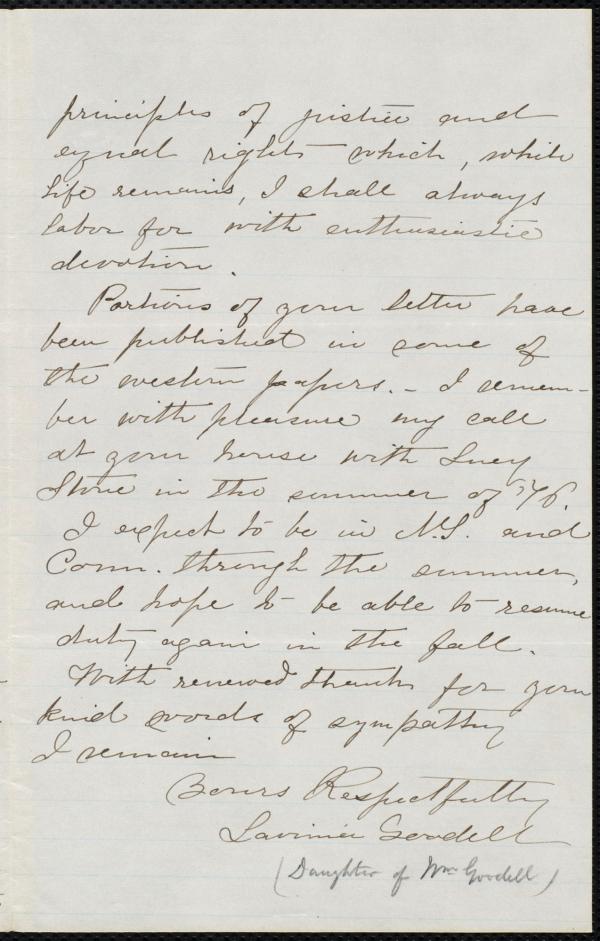 principles of justice and
equal rights which, while
life remains, I shall always
labor for with enthusiastic
devotion.
Portions of your letter have
been published in some of
the western papers. - I remem-
ber with pleasure my call
at your house with Lucy
Stone in the summer of '76.
I expect to be in N.Y. and
Conn. through the summer,
and hope to be able to resume
duty again in the fall.
With renewed thanks for your
kind words of sympathy
I remain
Yours Respectfully
Lavinia Goodell
(Daughter of Wm Goodell)